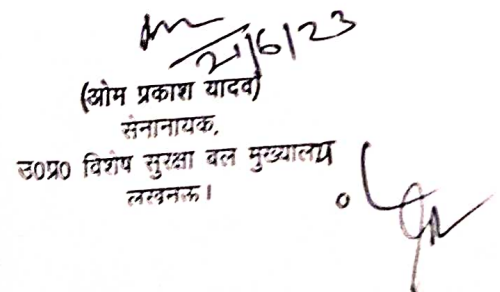 21/6/23
(ओम प्रकाश यादव)
सेनानायक,
उ०प्र० विशेष सुरक्षा बल मुख्यालय
लखनऊ।